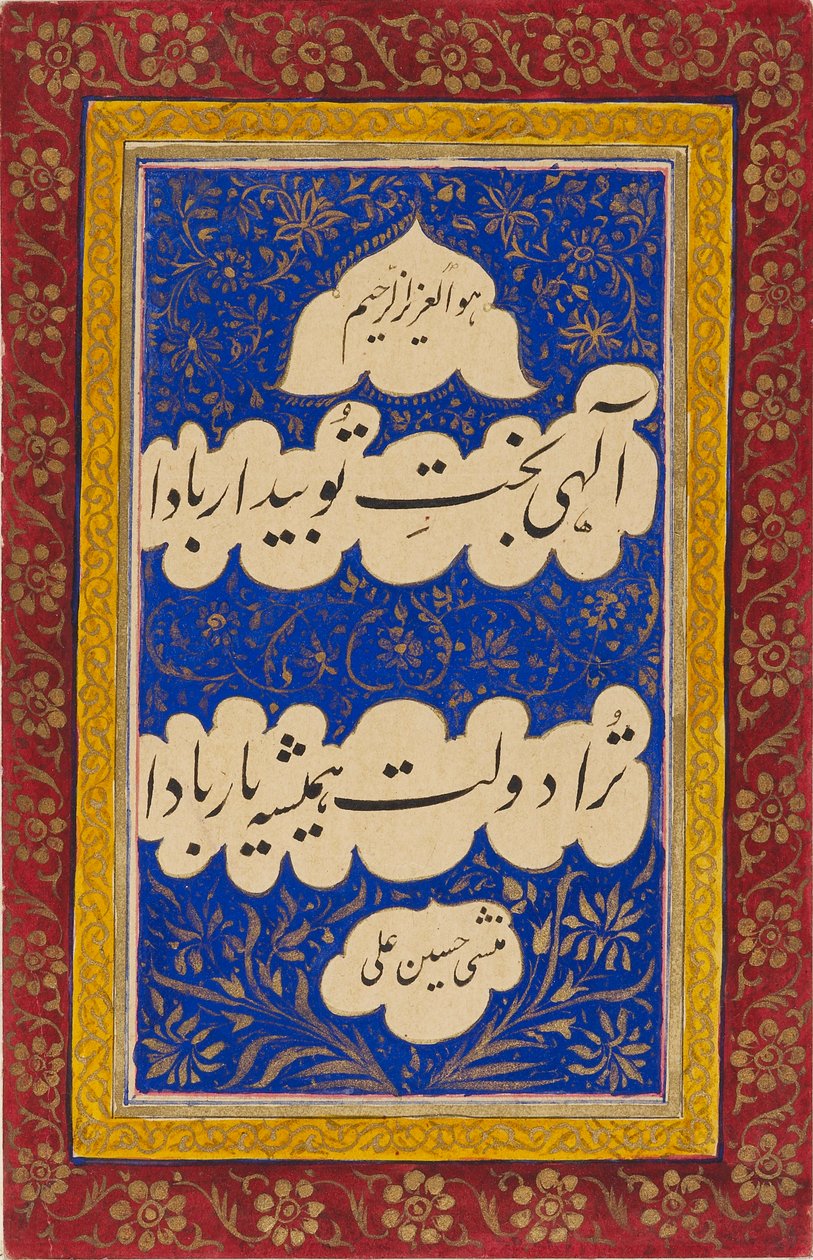 هو العزيز الرّحيم
آلهی بختِ تُو بیدار بادا
تُرا دولت همیشه یار بادا
منشی حسین علی